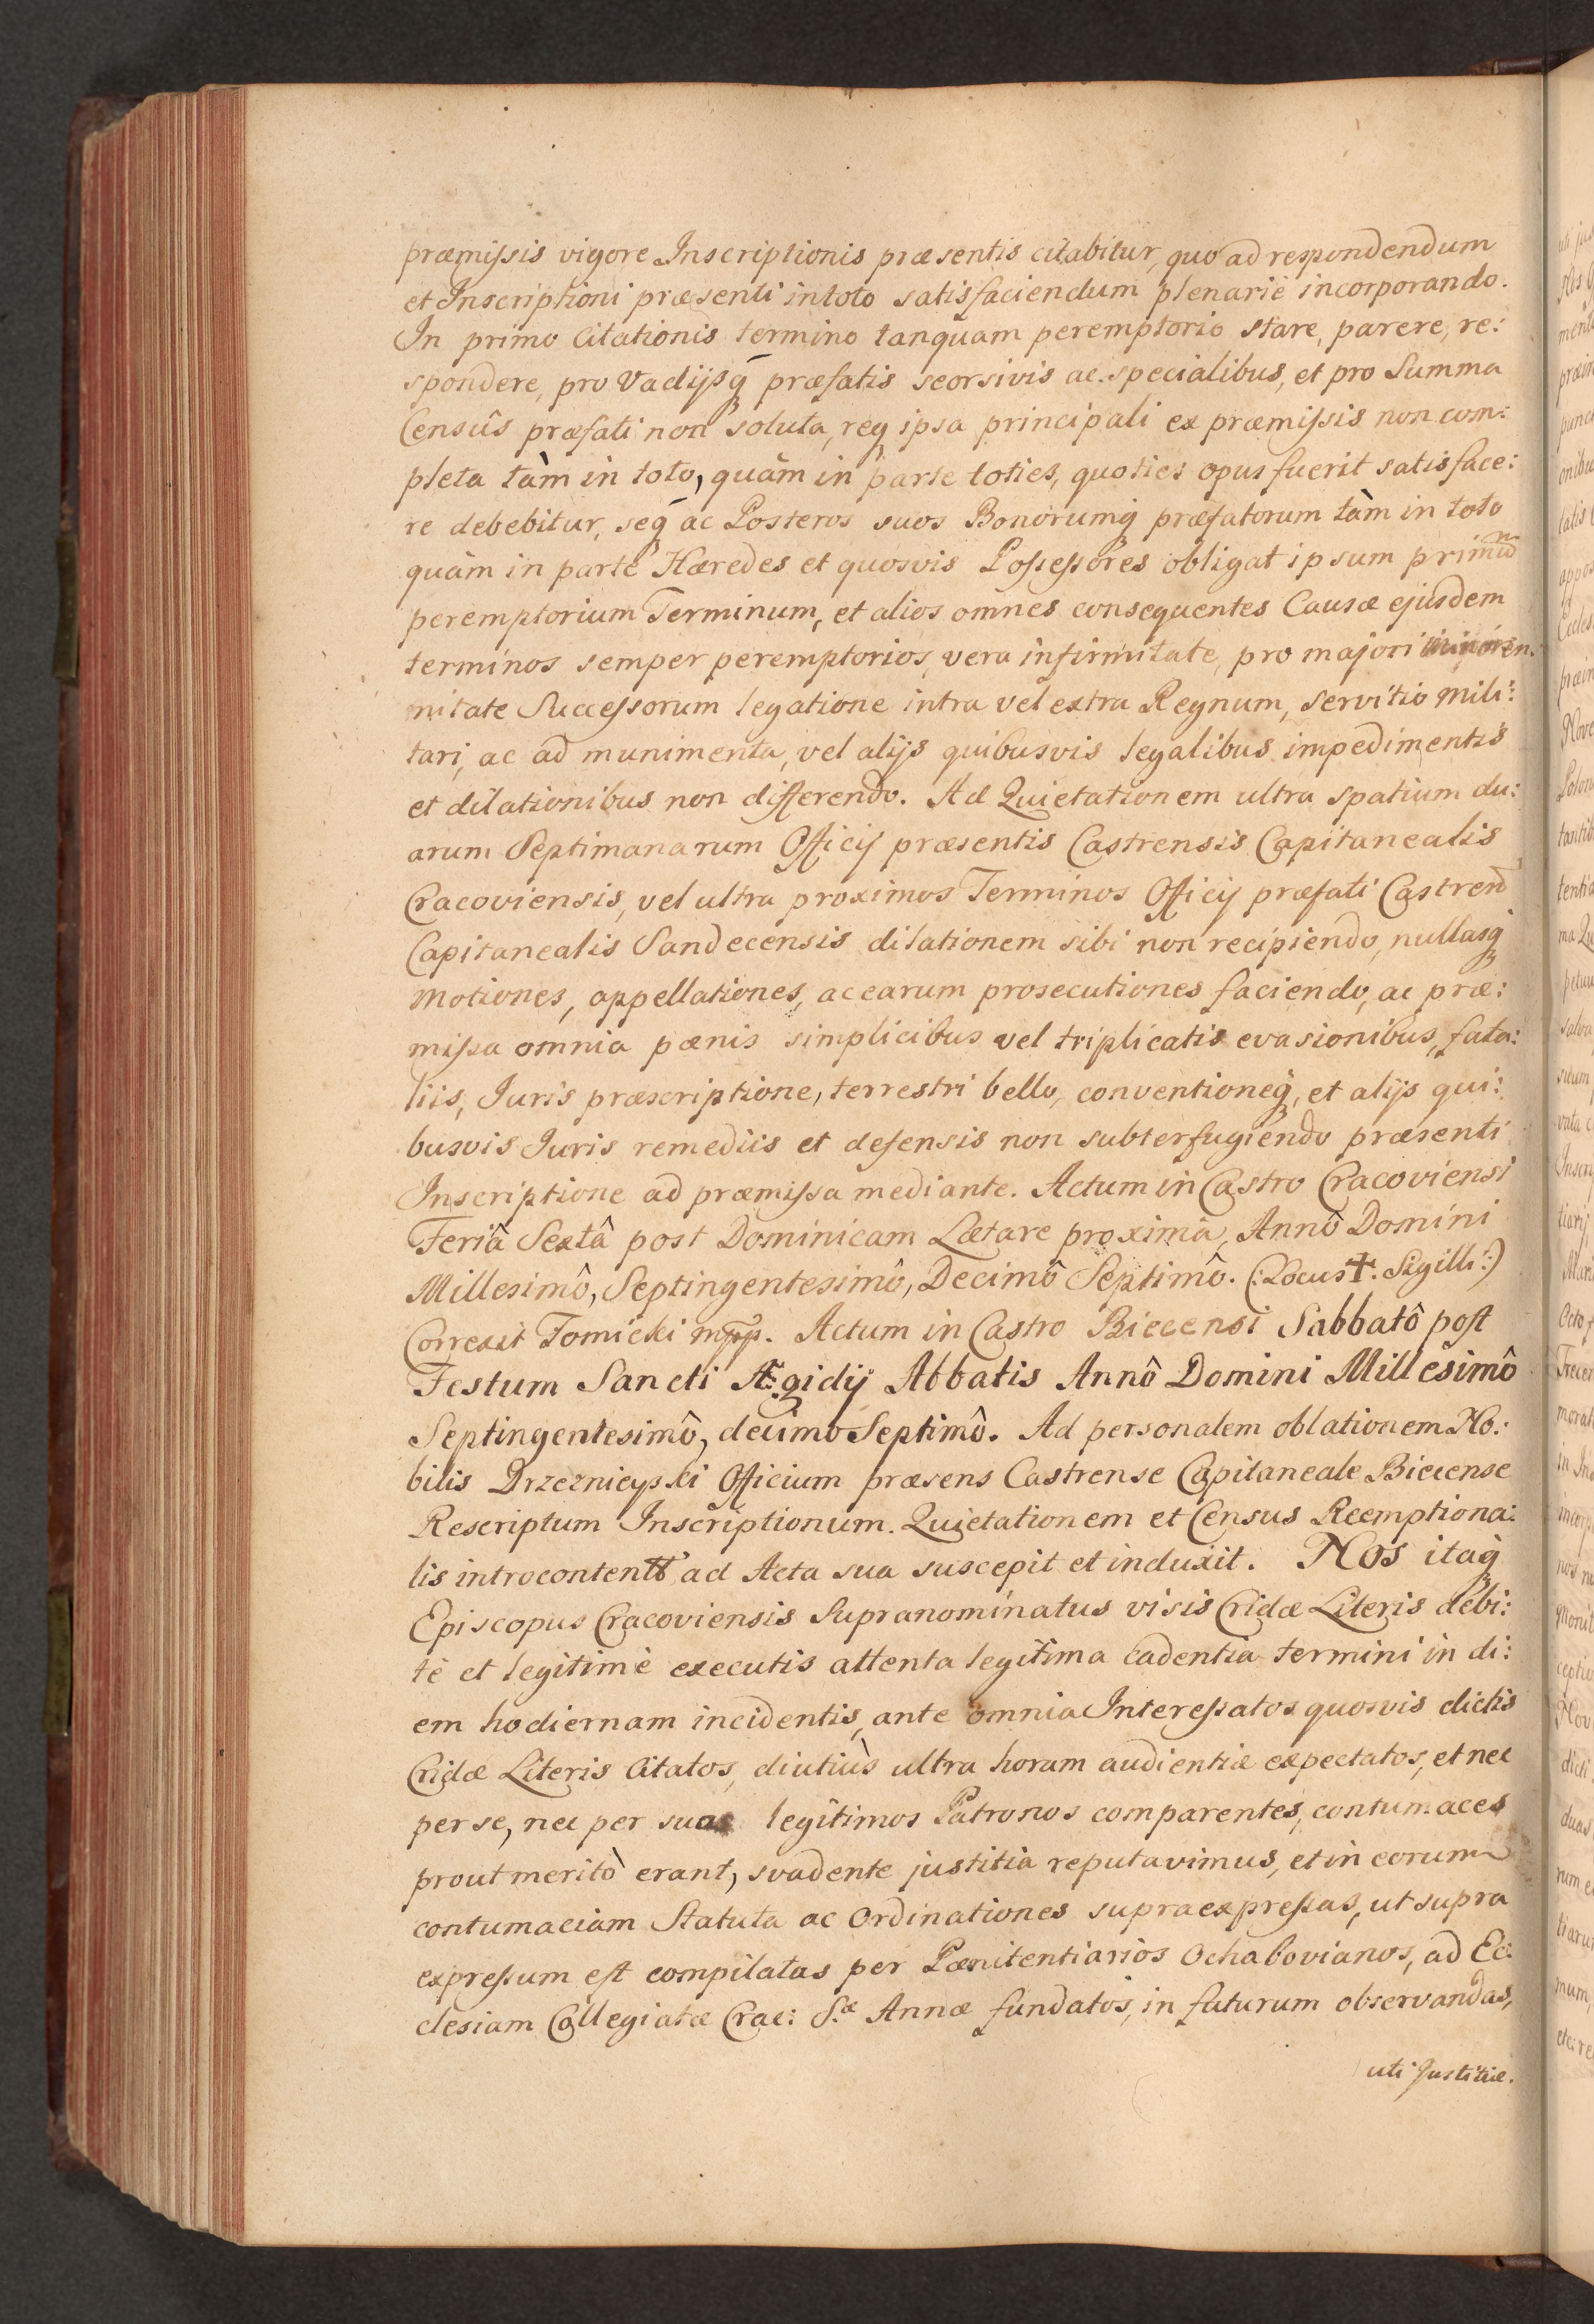 præmissis vigore Inscriptionis præsentis citabitur, quo ad respondendum
et Inscriptioni præsenti in toto satisfaciendum plenariè incorporando.
In primo Citationis termino tanquam peremptorio stare, parere, re:
spondere, pro Vadijsq̃ præfatis seorsivis ac specialibus, et pro Summa
Censûs præfati non soluta, req ipsa principali ex præmissis non com:
pleta tàm in toto, quàm in parte toties, quoties opus fuerit satisface:
re debebitur, seq̃ ac Posteros suos Bonorumq̃ præfatorum tàm in toto
quàm in parte Hæredes et quosvis Possessores obligat ipsum primũ
peremptorium Terminum, et alios omnes consequentes Causæ ejusdem
terminos semper peremptorios, vera infirmitate, pro majori minoren:
nitate Successorum legatione intra vel extra Regnum, servitio mili:
tari, ac ad munimenta, vel alijs quibusvis legalibus impedimentis
et dilationibus non differendo. Ad Quietationem ultra spatium du:
arum Septimanarum Officij præsentis Castrensis Capitanealis
Cracoviensis, vel ultra proximos Terminos Officij præfati Castren̄
Capitanealis Sandecensis dilationem sibi non recipiendo, nullasq̃
motiones, appellationes, ac earum prosecutiones faciendo, ac præ:
missa omnia pænis simplicibus vel triplicatis evasionibus, fata:
liis, Juris præscriptione, terrestri bello, conventioneq̃, et alijs qui:
busvis Juris remediis et defensis non subterfugiendo præsenti
Inscriptione ad præmissa mediante. Actum in Castro Cracoviensi
Feriâ Sextâ post Dominicam Lætare proximâ, Annô Domini
Millesimô, Septingentesimô, Decimô Septimô. (:Locus ✝. Sigilli:)
Correxit Tomicki mpp. Actum in Castro Biecensi Sabbatô post
Festum Sancti Ægidij Abbatis Annô Domini Millesimô
Septingentesimô, decimo Septimô. Ad personalem oblationem No:
bilis Drzeznicyski Officium præsens Castrense Capitaneale Biecense
Rescriptum Inscriptionum. Quietationem et Census Reemptiona:
lis introcontent̃ ad Acta sua suscepit et induxit. Nos itaq̃
Episcopus Cracoviensis Supranominatus visis Cridæ Literis debi:
tè et legitimè executis attenta legitima cadentia termini in di:
em hodiernam incidentis, ante omnia Interessatos quosvis dictis
Cridæ Literis Citatos, diutiùs ultra horam audientiæ expectatos, et nec
per se, nec per suos legitimos Patronos comparentes, contumaces
prout meritò erant, svadente justitia reputavimus, et in eorum
contumaciam Statuta ac Ordinationes supraexpressas, ut supra
expressum est compilatas per Pænitentiarios Ochabovianos, ad Ec:
clesiam Collegiatæ Crac: S.æ Annæ fundatos, in futurum observandas,
uti Justitiæ.